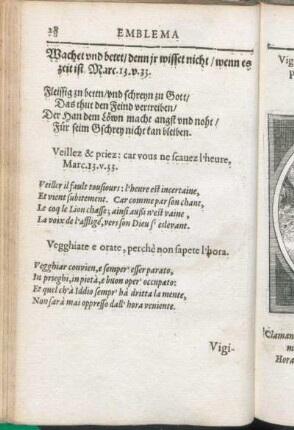 28 EMBLEMA
Wachet vnd betet / denn jr wisset nicht / wenn es
zeit ist. Marc. 13. v. 33.
Fleissig zu beten / vnd schreyn zu Gott /
Das thut den Feind vertreiben /
Der Han dem Löwn macht angst vnd noht /
Für seim Gschrey nicht kan bleiben.
Veillez & priez: car vous ne scauez l'heure,
Marc. 13. v. 33.
Veiller il fault tousiours: l'heure est incertaine,
Et vient subitement. Car comme par son chant,
Le coq le Lion chasse; ainsi aussi n'est vaine,
La voix de l'affligé, vers son Dieu s'eslevant.
Vegghiate e orate, perchè non sapete l'hora.
Vegghiar convien, e semper' esser parato,
In prieghi, in pietà, e buon oper' occupato:
Et quel ch'à Iddio sempr' hà dritta la mente,
Non sarà mai oppresso dall' hora veniente.
Vigi-
Vig
Claman
m
Hora